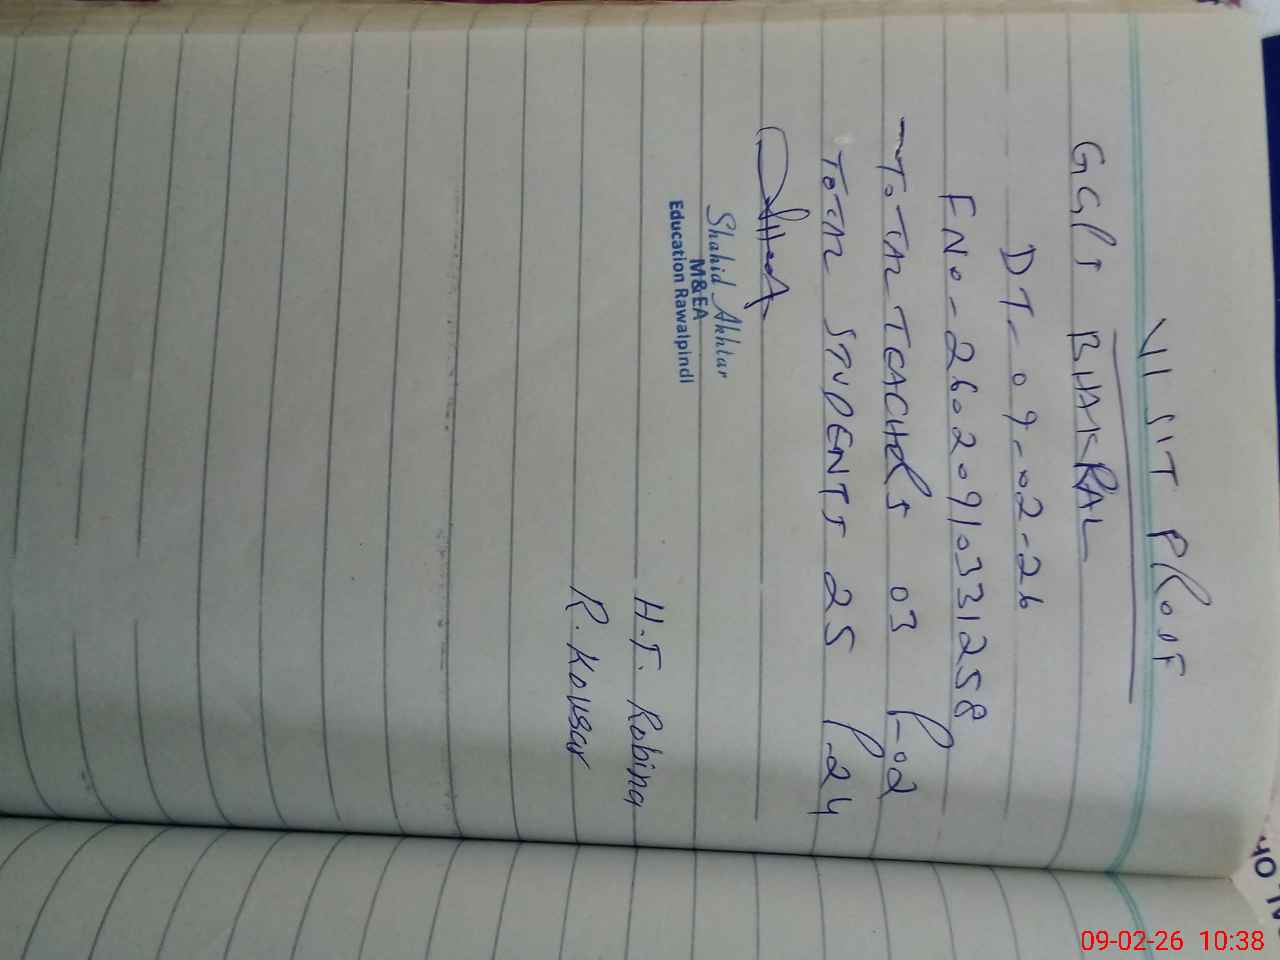 VISIT PROOF
GGPS BHAKRAL
DT- 09-02-26
FNo- 26020910331258
TOTAL TEACHERS 03 P-02
TOTAL STUDENTS 25 P-24
Shahid Akhtar
M&EA
Education Rawalpindi
H.T. Robina
R. Kousar
09-02-26 10:38